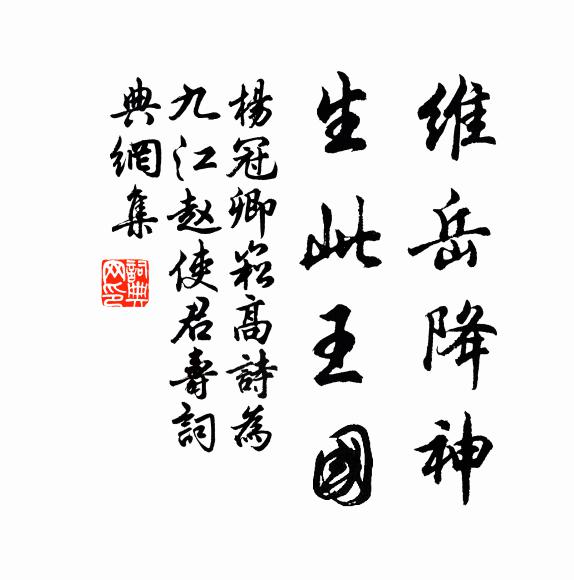 維岳降神
生此王國
楊冠卿崧高詩為
九江赵使君壽詞
典網集
詞典
网印